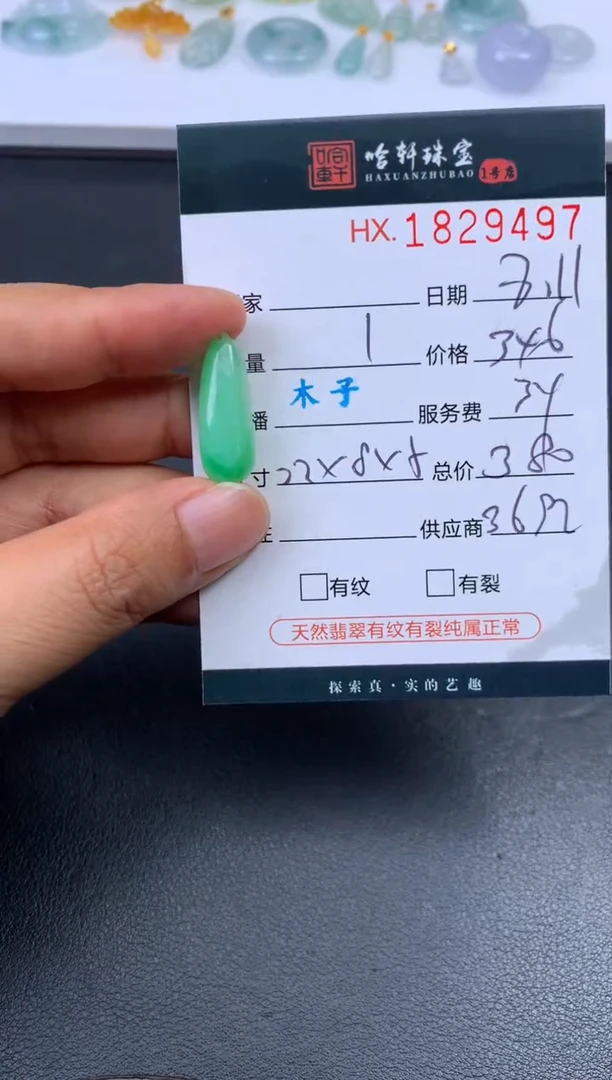 哈轩珠宝
HAXUANZHUBAO 1号店
HX.1829497
家 日期 7.11
量 1 价格 346
番 木子 服务费 34
寸 22×8×8 总价 380
供应商
有纹 有裂
天然翡翠有纹有裂纯属正常
探索真·实的艺趣